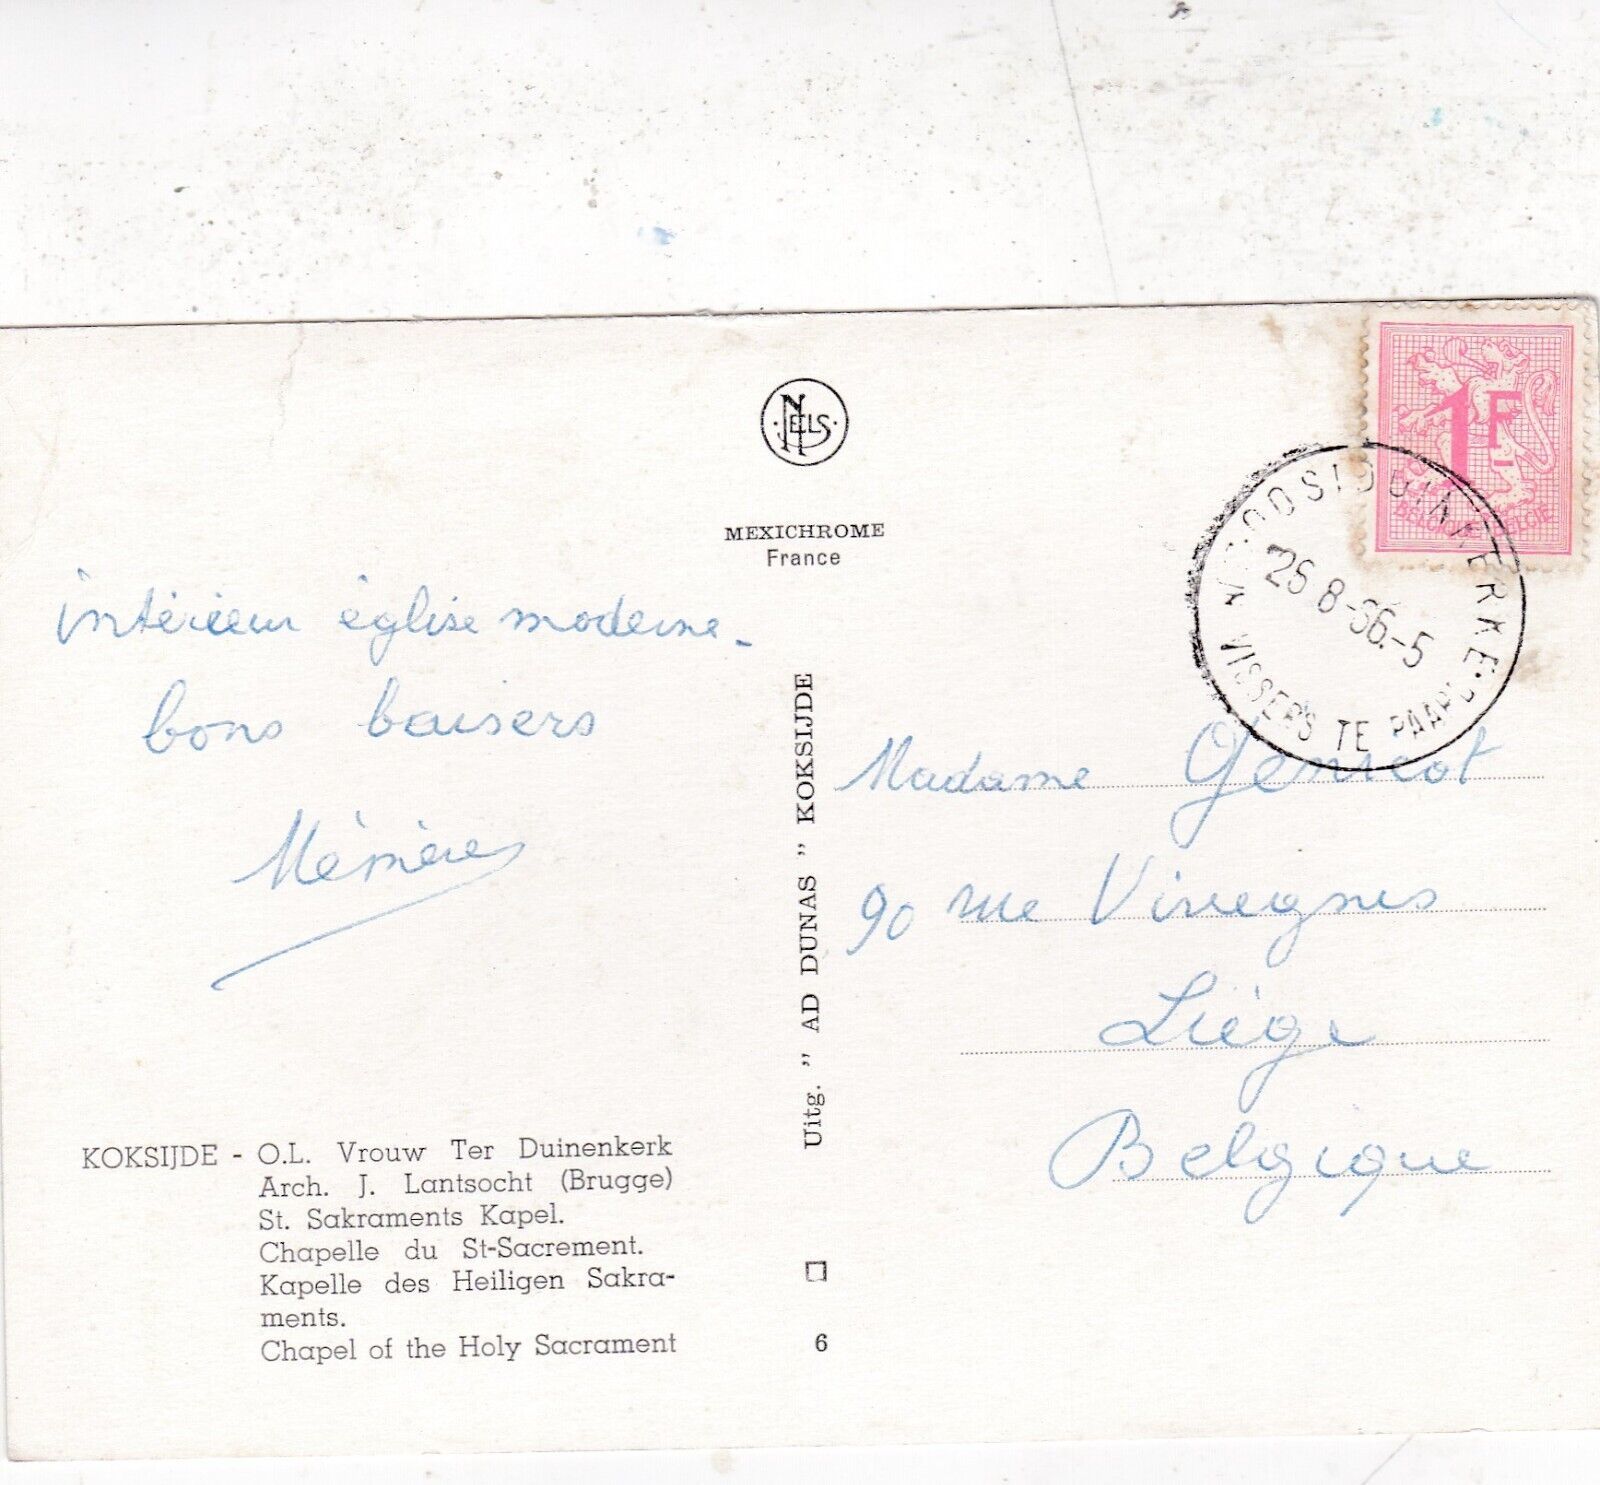 NELS
MEXICHROME
France
1F
BELGIQUE BELGIË
OOSTDUINKERKE
26-8-66.-5
VISSERS TE PAARD
intérieur église moderne.
bons baisers
Mémère
Uitg. " AD DUNAS " KOKSIJDE
Madame Genicot
90 rue Vivegnis
Liège
Belgique
KOKSIJDE - O.L. Vrouw Ter Duinenkerk
Arch. J. Lantsocht (Brugge)
St. Sakraments Kapel.
Chapelle du St-Sacrement.
Kapelle des Heiligen Sakra-
ments.
Chapel of the Holy Sacrament
6